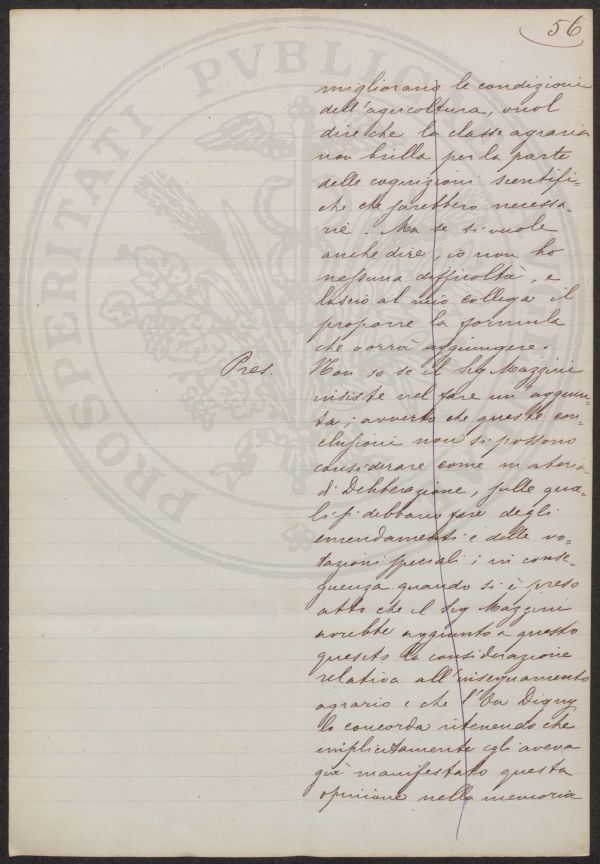 56
migliorano le condizioni
dell'agricoltura, vuol
dire che la classe agraria
non brilla per la parte
delle cognizioni scentifi-
che che sarebbero necessa-
rie. Ma se si vuole
anche dire, io non ho
nessuna difficoltà, e
lascio al mio collega il
proporre la formula
che vorrà aggiungere.
Pres. Non so se il Sig Mazzini
insiste nel fare un'aggiun-
ta; avverto che queste con-
clusioni non si possono
considerare come materia
di Deliberazione, sulle qua-
li si debbano fare degli
emendamenti e delle vo-
tazioni speciali; in conse-
guenza quando si è preso
atto che il Sig Mazzini
avrebbe aggiunto a questo
quesito la considerazione
relativa all'insegnamento
agrario e che l'On Digny
lo concorda ritenendo che
implicitamente egli aveva
già manifestato questa
opinione nella memoria
PROSPERITATI PVBLICAE